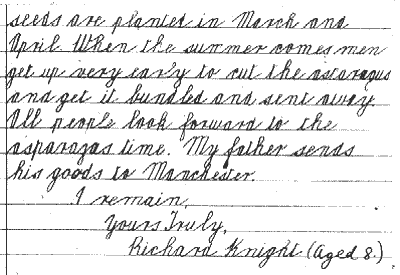 seeds are planted in March and
April. When the summer comes men
get up very early to cut the asparagus
and get it bundled and sent away
All people look forward to the
asparagas time. My father sends
his goods to Manchester.
I remain,
Yours Truly,
Richard Knight (Aged 8.)